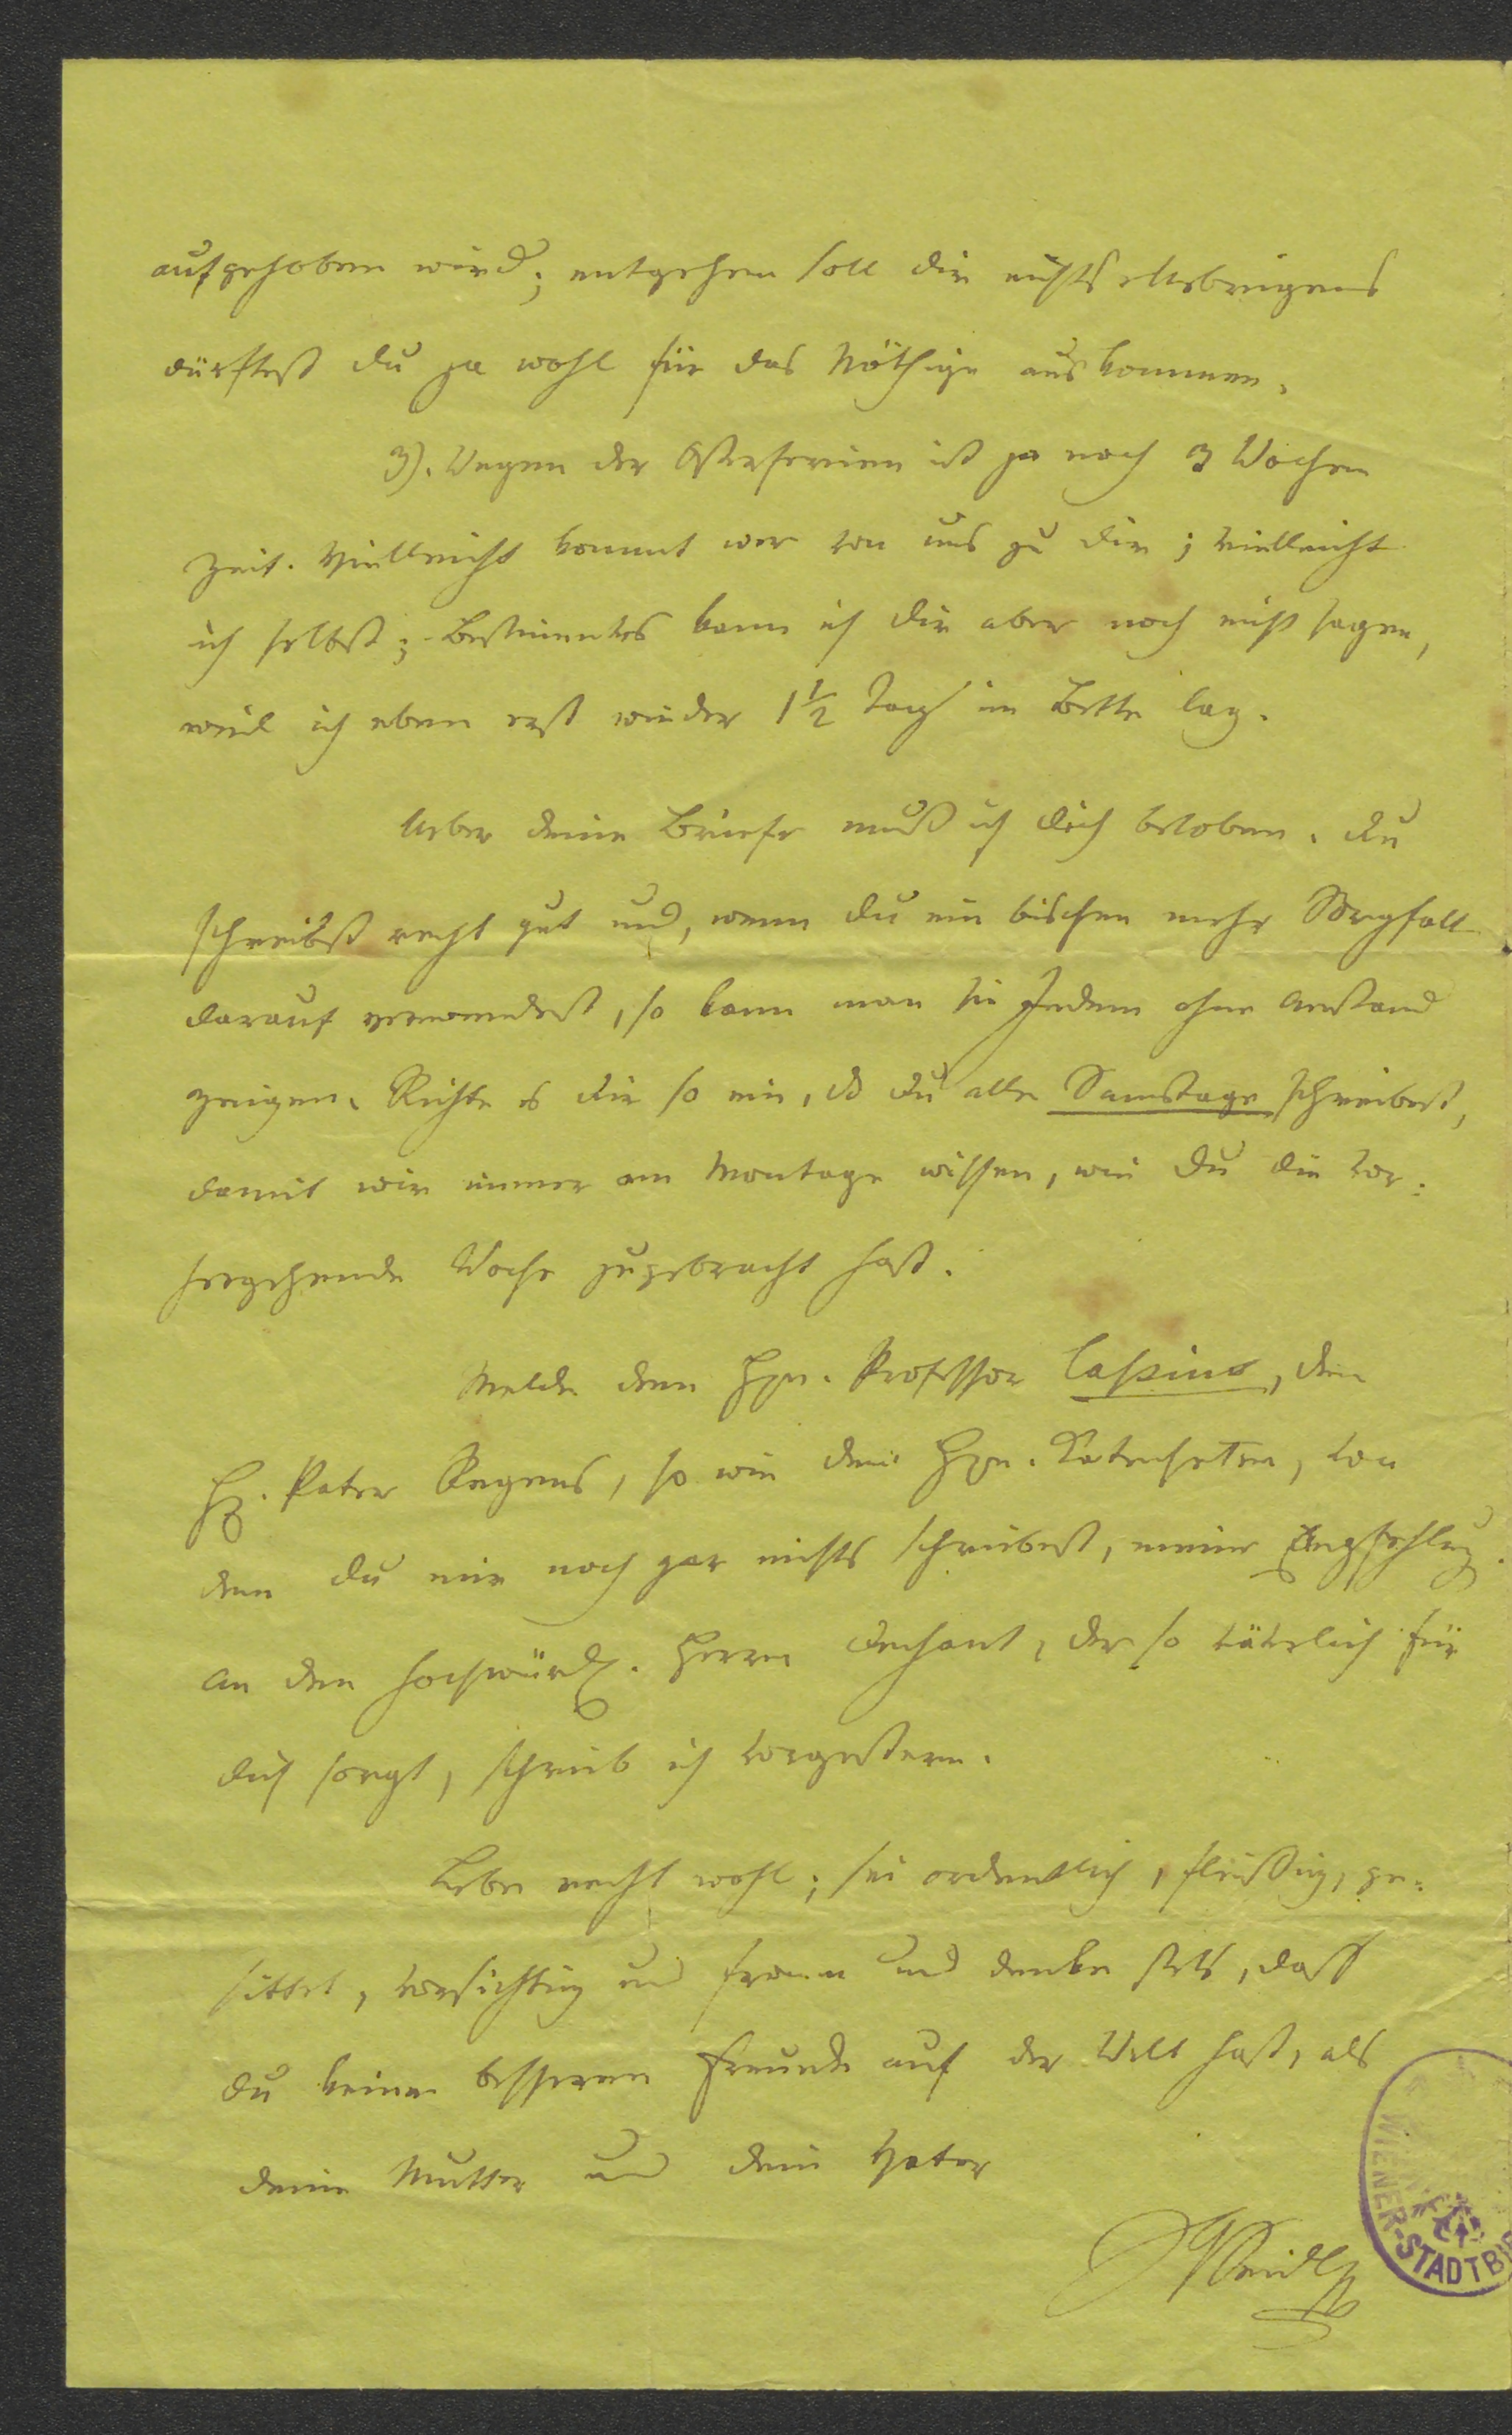 aufgehoben wird; entgehen soll dir nichts. Uebrigens
dürftest du ja wohl für das Nöthige auskommen.
3). Wegen der Osterferien ist ja noch 3 Wochen
Zeit. Vielleicht kommt wer von uns zu dir; vielleicht
ich selbst; Bestimmtes kann ich dir aber noch nicht sagen,
weil ich eben erst wieder 1 1/2 Tag im Bette lag.
Ueber deine Briefe muß ich dich beloben. Du
schreibst recht gut und, wenn du ein bischen mehr Sorgfalt
darauf verwendest, so kann man sie Jedem ohne Anstand
zeigen. Richte es dir so ein, dß du alle Samstage schreibest,
damit wir immer am Montage wissen, wie du die vor-
hergehende Woche zugebracht hast.
Melde dem Hrn. Professor Cassius, dem
H. Pater Regens, so wie dem Hrn. Katecheten, von
dem du mir noch gar nichts schreibest, meine Empfehlung.
An den hochwürd. Herrn Dechant, der so väterlich für
dich sorgt, schrieb ich vorgestern.
Lebe recht wohl; sei ordentlich, fleißig, ge-
sittet, vorsichtig und fromm und denke stets, dass
du keine besseren Freunde auf der Welt hast, als
deine Mutter und dein Vater
JGSeidl
WIENER-STADTBI